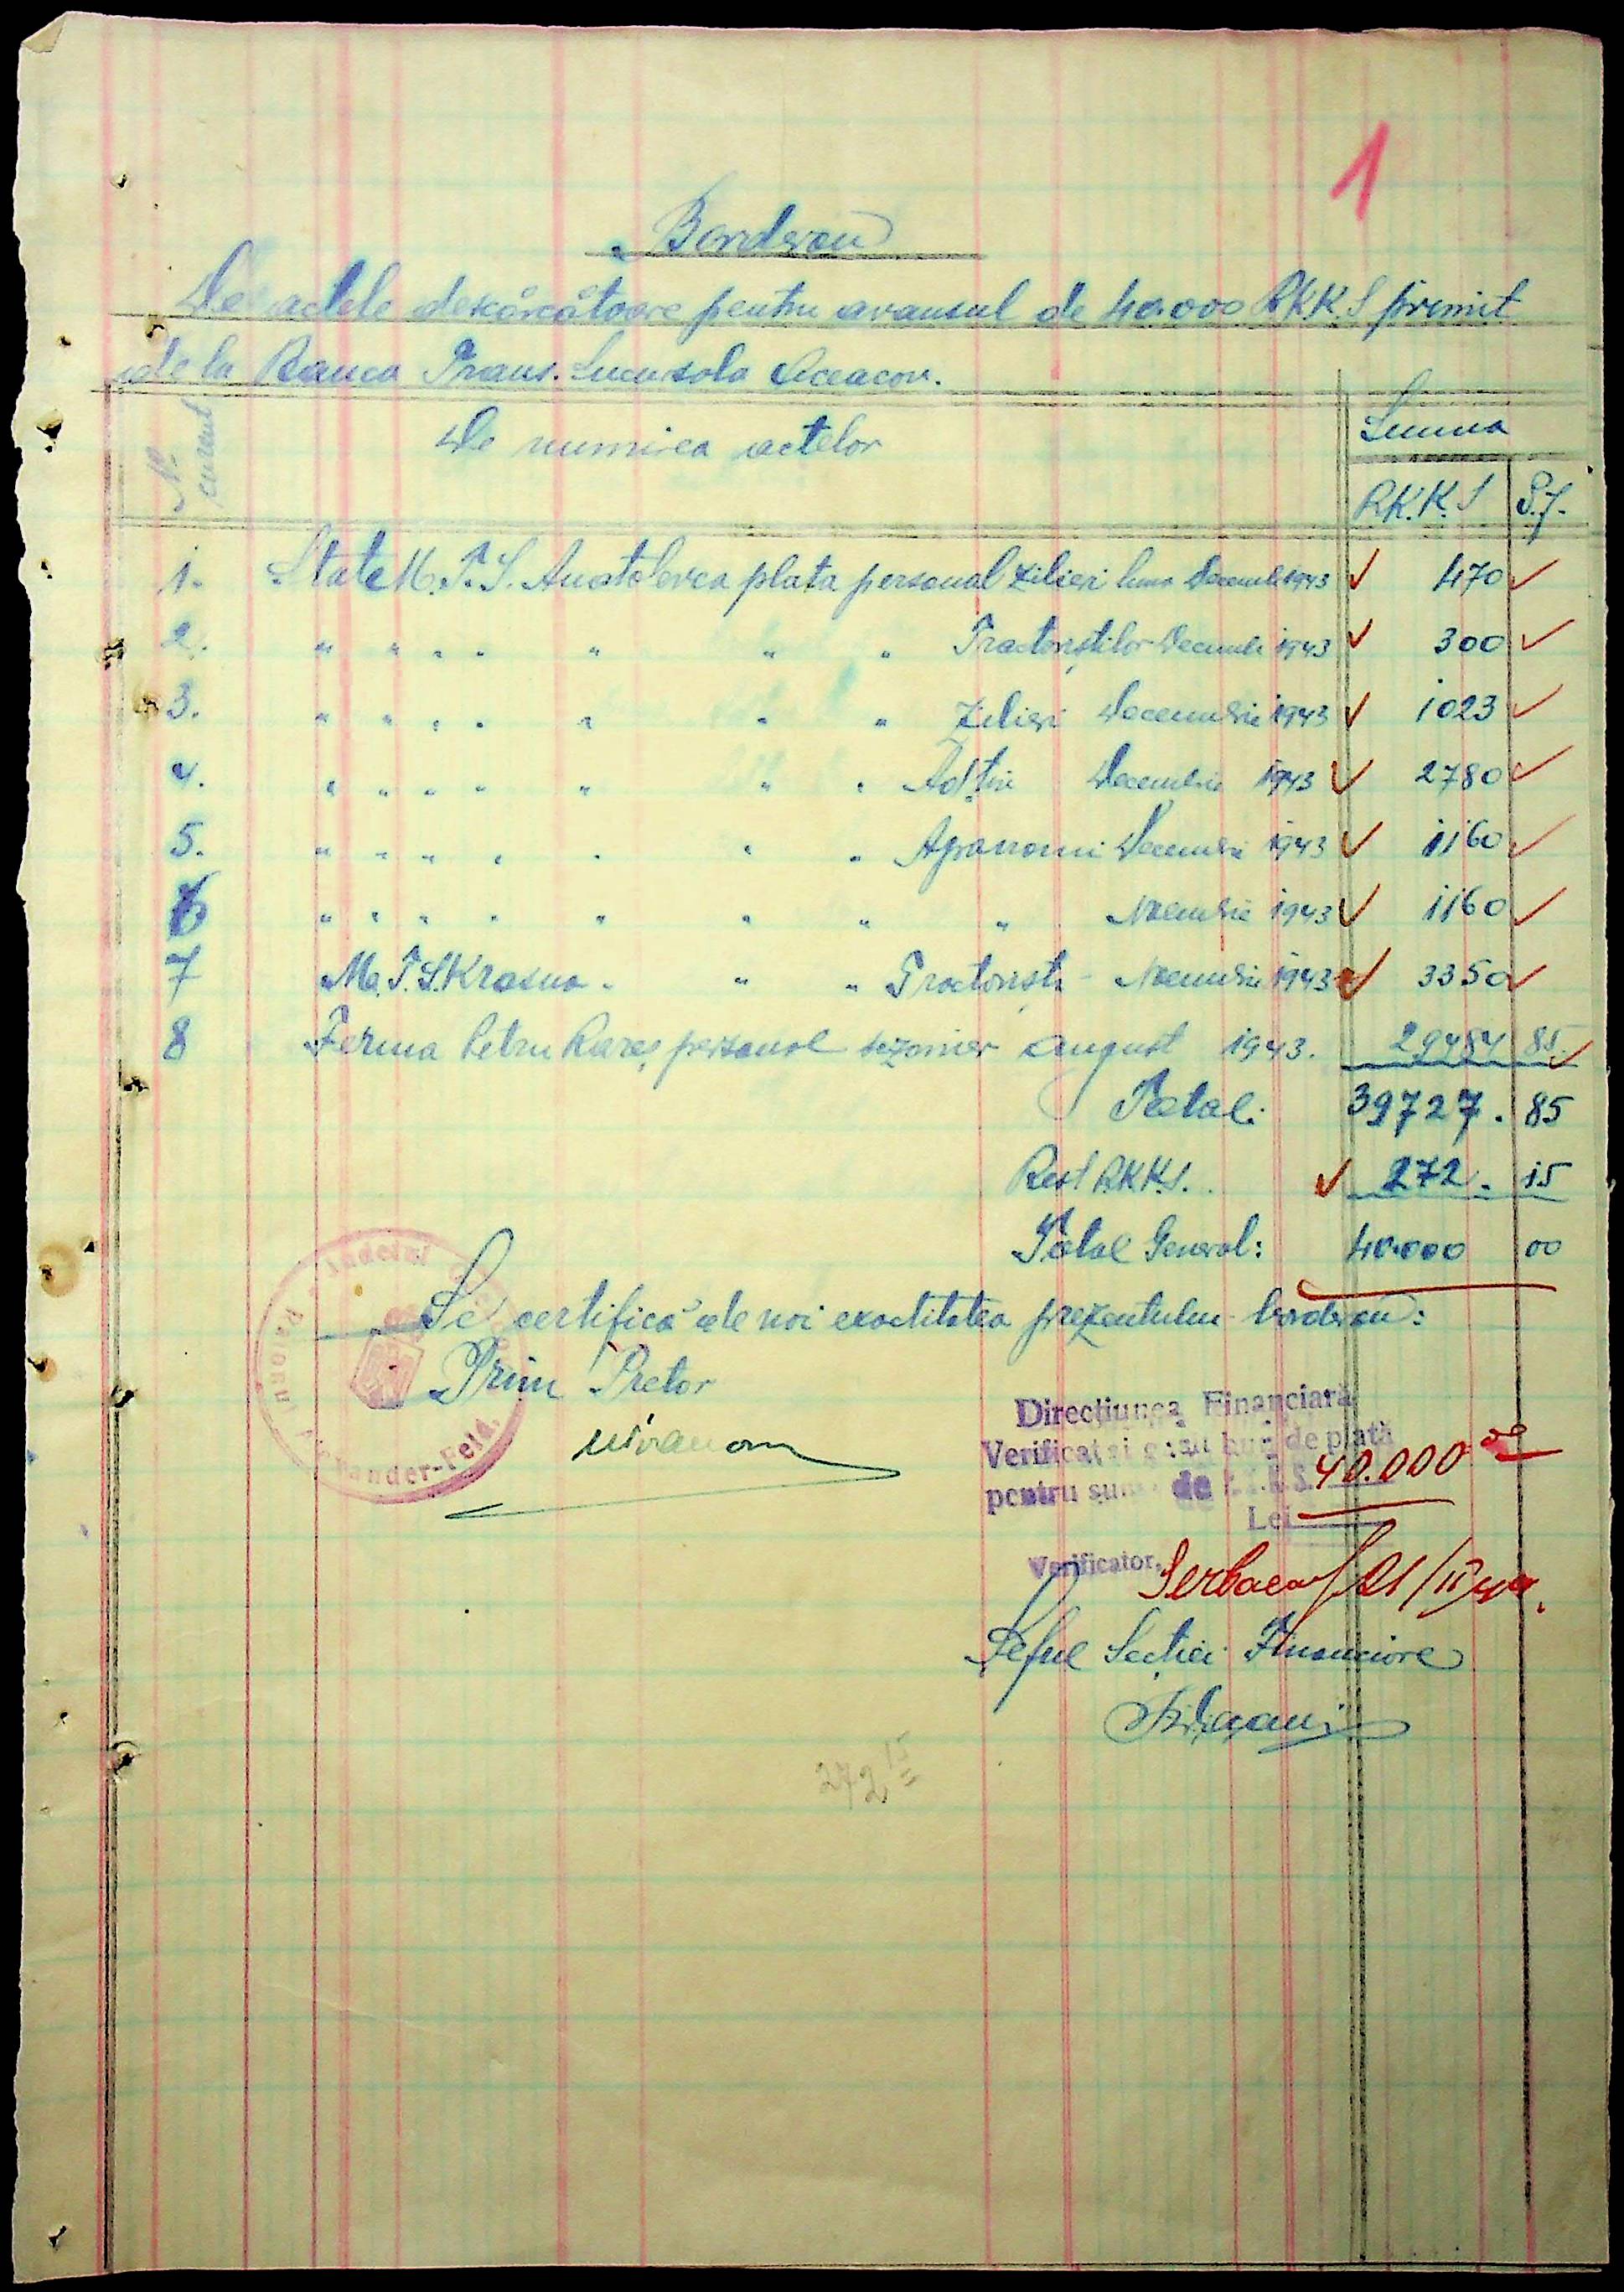 1
Borderou
De actele deskărcătoare pentru avansul de 40.000 RKKS primit
de la Banca Trans. Sucursala Oceacov.
No curent
De numirea actelor
Summa
R.K.K.S
P.f.
1. State M.T.S. Anatolevca plata personal zilieri luna Decembrie 1943 470
2. " " " " " " " Tractoriștilor Decembrie 1943 300
3. " " " " " " " Zilieri Decembrie 1943 1023
4. " " " " " " " Decembrie 1943 2780
5. " " " " " " " Agronomi Decembrie 1943 1160
6 " " " " " " " " Noembrie 1943 1160
7 Ma.T.S. Krasna " " " Tractoristi - Noembrie 1943 3350
8 Ferma Petru Rareș personal sezonier august 1943. 29484 85
Total: 39727. 85
Rest R.K.K.S. 272. 15
Total General: 40.000 00
Se certifică de noi exactitatea prezentului borderou:
Prim Pretor
Județul
Raionu
Alexander-Feld.
Direcțiunea Financiară
Verificat și găsit bun de plată
pentru suma de R.K.K.S. 40.000
Lei
Verificator,
21/II 944.
Șeful Secției Financiare
272 15